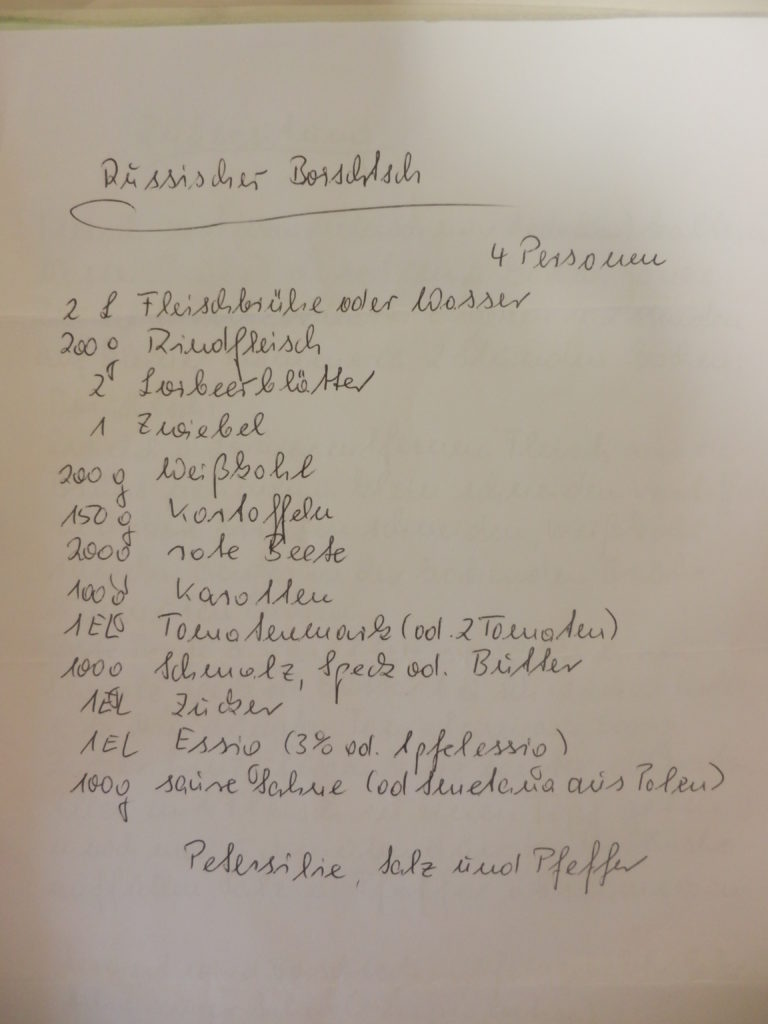 Russischer Borschtsch
4 Personen
2 l Fleischbrühe oder Wasser
200 g Rindfleisch
2 Lorbeerblätter
1 Zwiebel
200 g Weißkohl
150 g Kartoffeln
200 g rote Beete
100 g Karotten
1 EL Tomatenmark (od. 2 Tomaten)
100 g Schmalz, Speck od. Butter
1 EL Zucker
1 EL Essig (3% od. Apfelessig)
100 g saure Sahne (od Smetana aus Polen)
Petersilie, Salz und Pfeffer